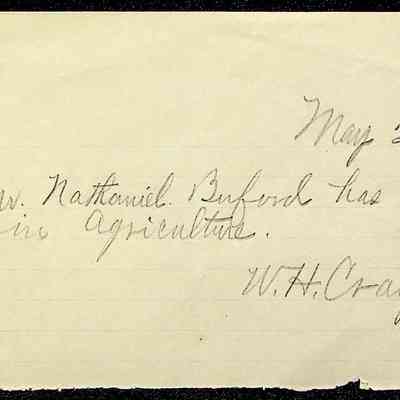 May
Nathaniel Buford has
in Agriculture.
W.H. Cra